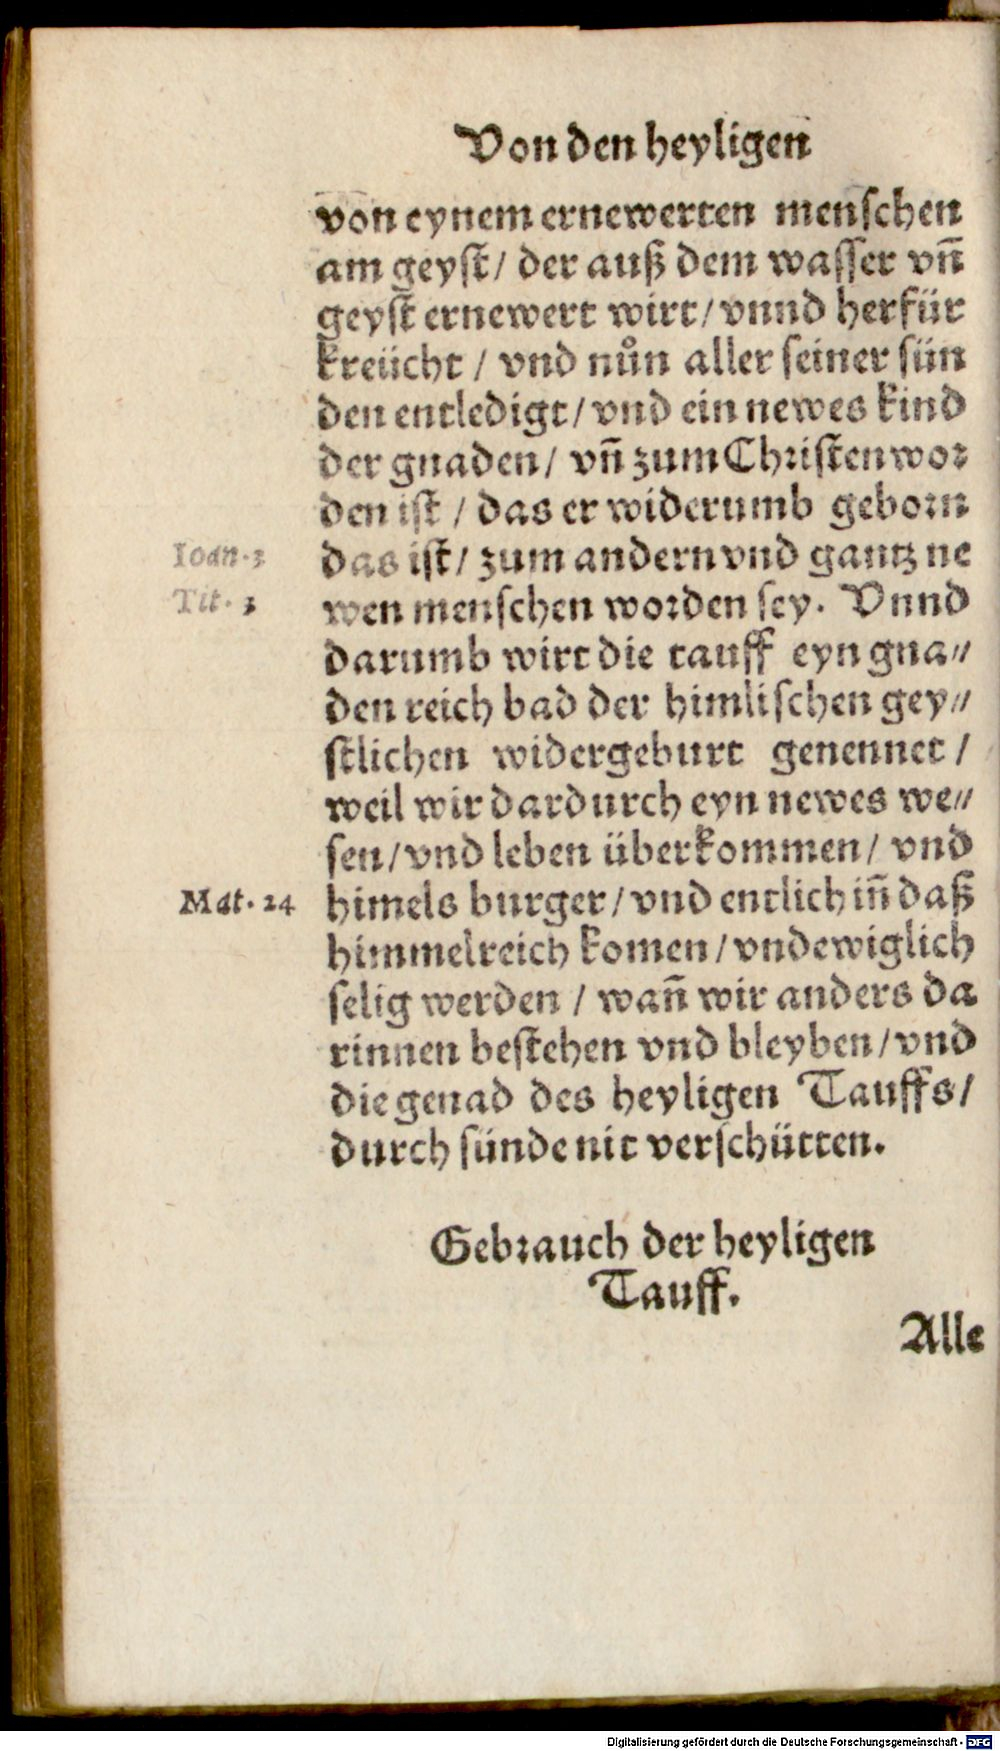 Von den heyligen
von eynem ernewerten menschen
am geyst/ der auß dem wasser vn̄
geyst ernewert wirt/ vnnd herfür
kreücht / vnd nůn aller seiner sün
den entledigt/ vnd ein newes kind
der gnaden/ vn̄ zum Christen wor
den ist / das er widerumb geborn
Ioan. 3 das ist/ zum andern vnd gantz ne
Tit. 3 wen menschen worden sey. Vnnd
darumb wirt die tauff eyn gna⸗
den reich bad der himlischen gey⸗
stlichen widergeburt genennet /
weil wir dardurch eyn newes we⸗
sen/ vnd leben überkommen/ vnd
Mat. 24 himels burger/ vnd entlich in̄ daß
himmelreich komen/ vnd ewiglich
selig werden / wan̄ wir anders da
rinnen bestehen vnd bleyben/ vnd
die genad des heyligen Tauffs/
durch sünde nit verschütten.
Gebrauch der heyligen
Tauff.
Alle
Digitalisierung gefördert durch die Deutsche Forschungsgemeinschaft - DFG